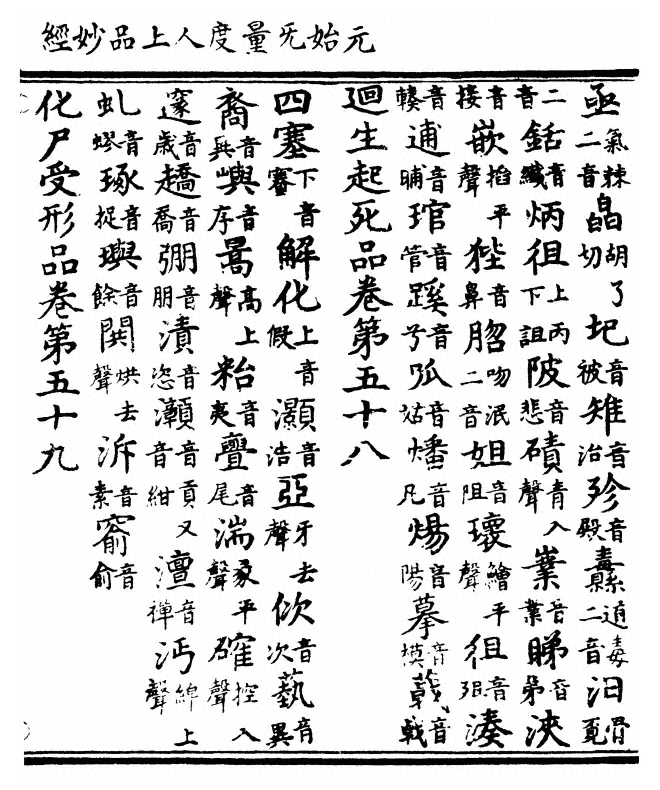 元始旡量度人上品妙經
亟氣棘二音皛胡了切圯音被雉音治殄音殿纛道毒二音汨骨覓
二音銛音纖炳徂上丙下詛陂音悲磧青入聲嶪音業睇音弟浹
音接嵌掐平聲狴音鼻脗吻泯二音姐音阻瓌鱠平聲徂音湊
音輳逋音晡琯音管蹊音兮音姑燔音凡煬音陽摹音模音戟
迴生起死品卷第五十八
四塞下音賽解化上音假灝音浩亞牙去聲佽音次藝音異
裔音異嶼音序暠高上聲音夷亹音尾湍彖平聲確控入聲
邃音歲趫音喬弸音朋漬音恣灨音貢又音紺澶音禪沔綿上聲
虬音蟉琢音捉璵音餘鬨烘去聲泝音素窬音俞
化尸受形品卷第五十九